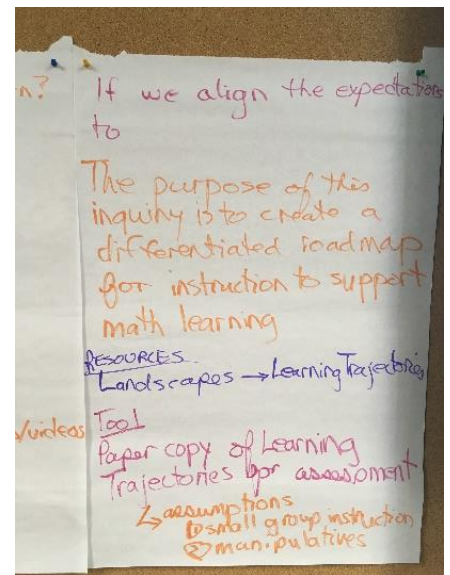 n?
/videos
If we align the expectations
to
The purpose of this
inquiry is to create a
differentiated roadmap
for instruction to support
math learning
RESOURCES
Landscapes → Learning Trajectories
Tool
Paper copy of Learning
Trajectories for assessment
↳ assumptions
① small group instruction
② manipulatives